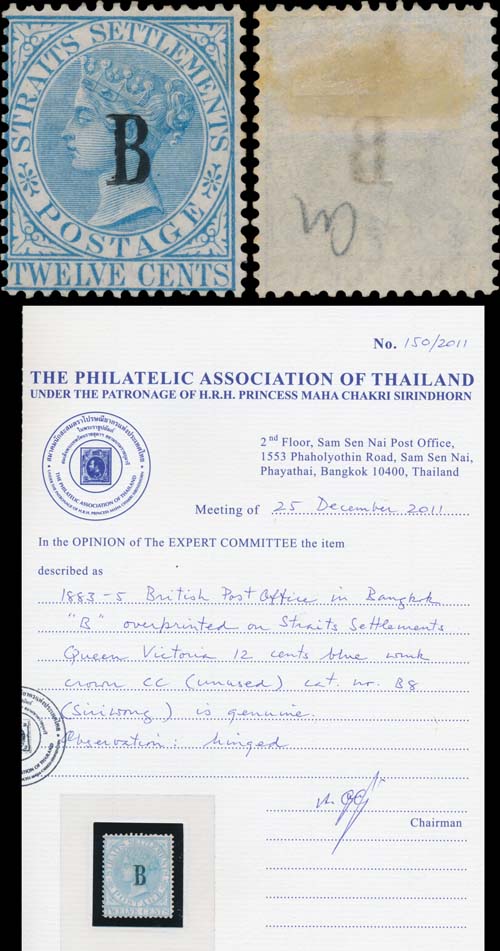 STRAITS SETTLEMENTS
B
POSTAGE
TWELVE CENTS
B
No. 150/2011
THE PHILATELIC ASSOCIATION OF THAILAND
UNDER THE PATRONAGE OF H.R.H. PRINCESS MAHA CHAKRI SIRINDHORN
THE PHILATELIC ASSOCIATION OF THAILAND
UNDER PATRONAGE OF H.R.H. PRINCESS MAHA CHAKRI SIRINDHORN
2nd Floor, Sam Sen Nai Post Office,
1553 Phaholyothin Road, Sam Sen Nai,
Phayathai, Bangkok 10400, Thailand
Meeting of 25 December 2011
In the OPINION of The EXPERT COMMITTEE the item
described as
1883-5 British Post Office in Bangkok
"B" overprinted on Straits Settlements
Queen Victoria 12 cents blue wmk
crown CC (unused) cat. no. B8
(Siriwong) is genuine.
Observation: hinged
Chairman
STRAITS SETTLEMENTS
B
POSTAGE
TWELVE CENTS